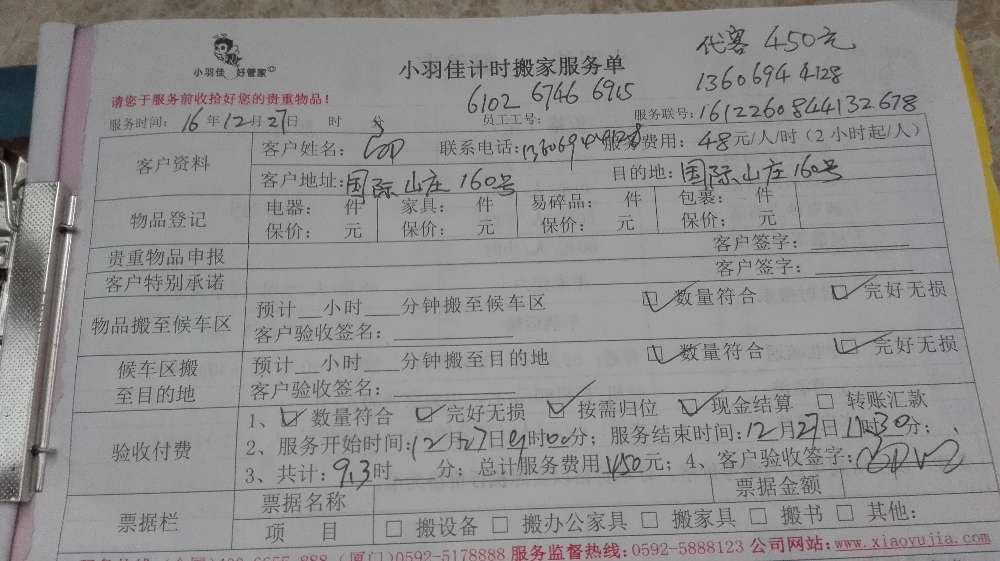 代客 450元
小羽佳 好管家
小羽佳计时搬家服务单
13606944128
请您于服务前收拾好您的贵重物品！
6102 6746 6915
服务时间：16年12月27日 时 分 员工工号： 服务联号：1612260844132678
客户资料 客户姓名： 联系电话： 服务费用：48元/人/时（2小时起/人）
客户地址：国际山庄160号 目的地：国际山庄160号
物品登记 电器： 件 家具： 件 易碎品： 件 包裹： 件
保价： 元 保价： 元 保价： 元 保价： 元
贵重物品申报 客户签字：
客户特别承诺 客户签字：
物品搬至候车区 预计__小时___分钟搬至候车区 ☑ 数量符合 ☑ 完好无损
客户验收签名：
候车区搬至目的地 预计__小时___分钟搬至目的地 ☑ 数量符合 ☑ 完好无损
客户验收签名：
验收付费 1、☑ 数量符合 ☑ 完好无损 ☑ 按需归位 ☑ 现金结算 □ 转账汇款
2、服务开始时间：12月27日9时00分；服务结束时间：12月27日11时30分；
3、共计：9.3时___分；总计服务费用450元；4、客户验收签字：
票据栏 票据名称 票据金额
项 目 □ 搬设备 □ 搬办公家具 □ 搬家具 □ 搬书 □ 其他：
(厦门)0592-5178888 服务监督热线：0592-5888123 公司网站：www.xiaoyujia.com